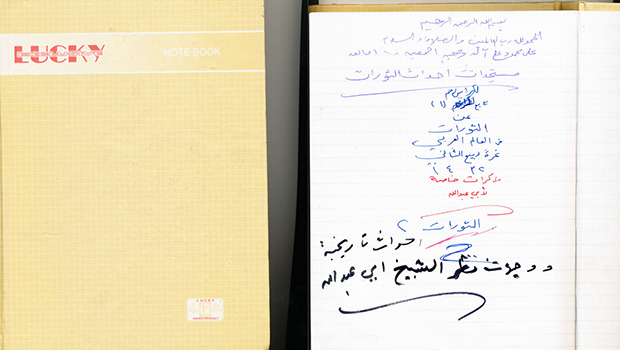 LUCKY
EXCLUSIVE
NOTE BOOK
LUCKY
PAPER PRODUCT
بسم الله الرحمن الرحيم
الحمد لله رب العالمين والصلاة والسلام
على محمد وعلى آله وصحبه أجمعين
مستجدات أحداث الثورات
تابع (١)
عن
الثورات
في العالم العربي
غرة ربيع الثاني
١٤٣٢
مذكرات خاصة
لأبي عبدالله
الثورات ٢
احداث تاريخية:
ووجهات نظر الشيخ ابي عبد الله